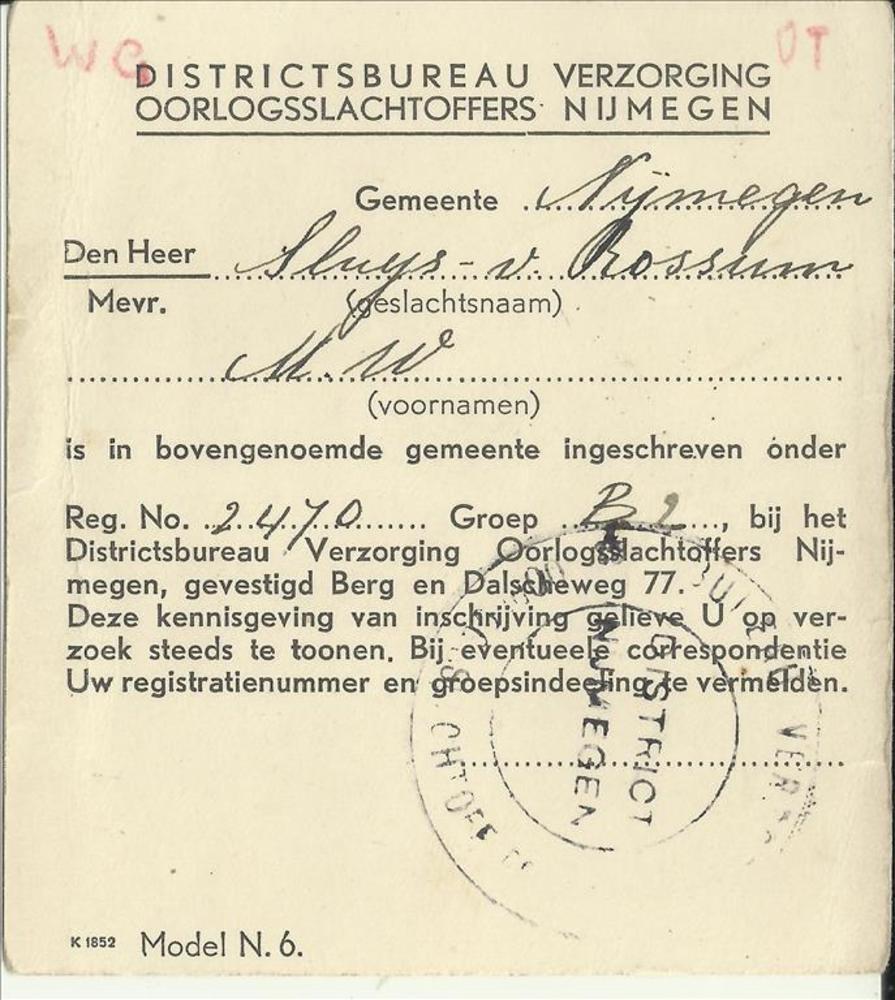 WG OT
DISTRICTSBUREAU VERZORGING
OORLOGSSLACHTOFFERS NIJMEGEN
Gemeente Nijmegen
Den Heer Sluys - v. Rossum
Mevr. (geslachtsnaam)
M. W
(voornamen)
is in bovengenoemde gemeente ingeschreven onder
Reg. No. 2470 Groep B 2, bij het
Districtsbureau Verzorging Oorlogsslachtoffers Nij-
megen, gevestigd Berg en Dalscheweg 77.
Deze kennisgeving van inschrijving gelieve U op ver-
zoek steeds te toonen. Bij eventueele correspondentie
Uw registratienummer en groepsindeeling te vermelden.
DISTRICT
NIJMEGEN
K 1852 Model N. 6.